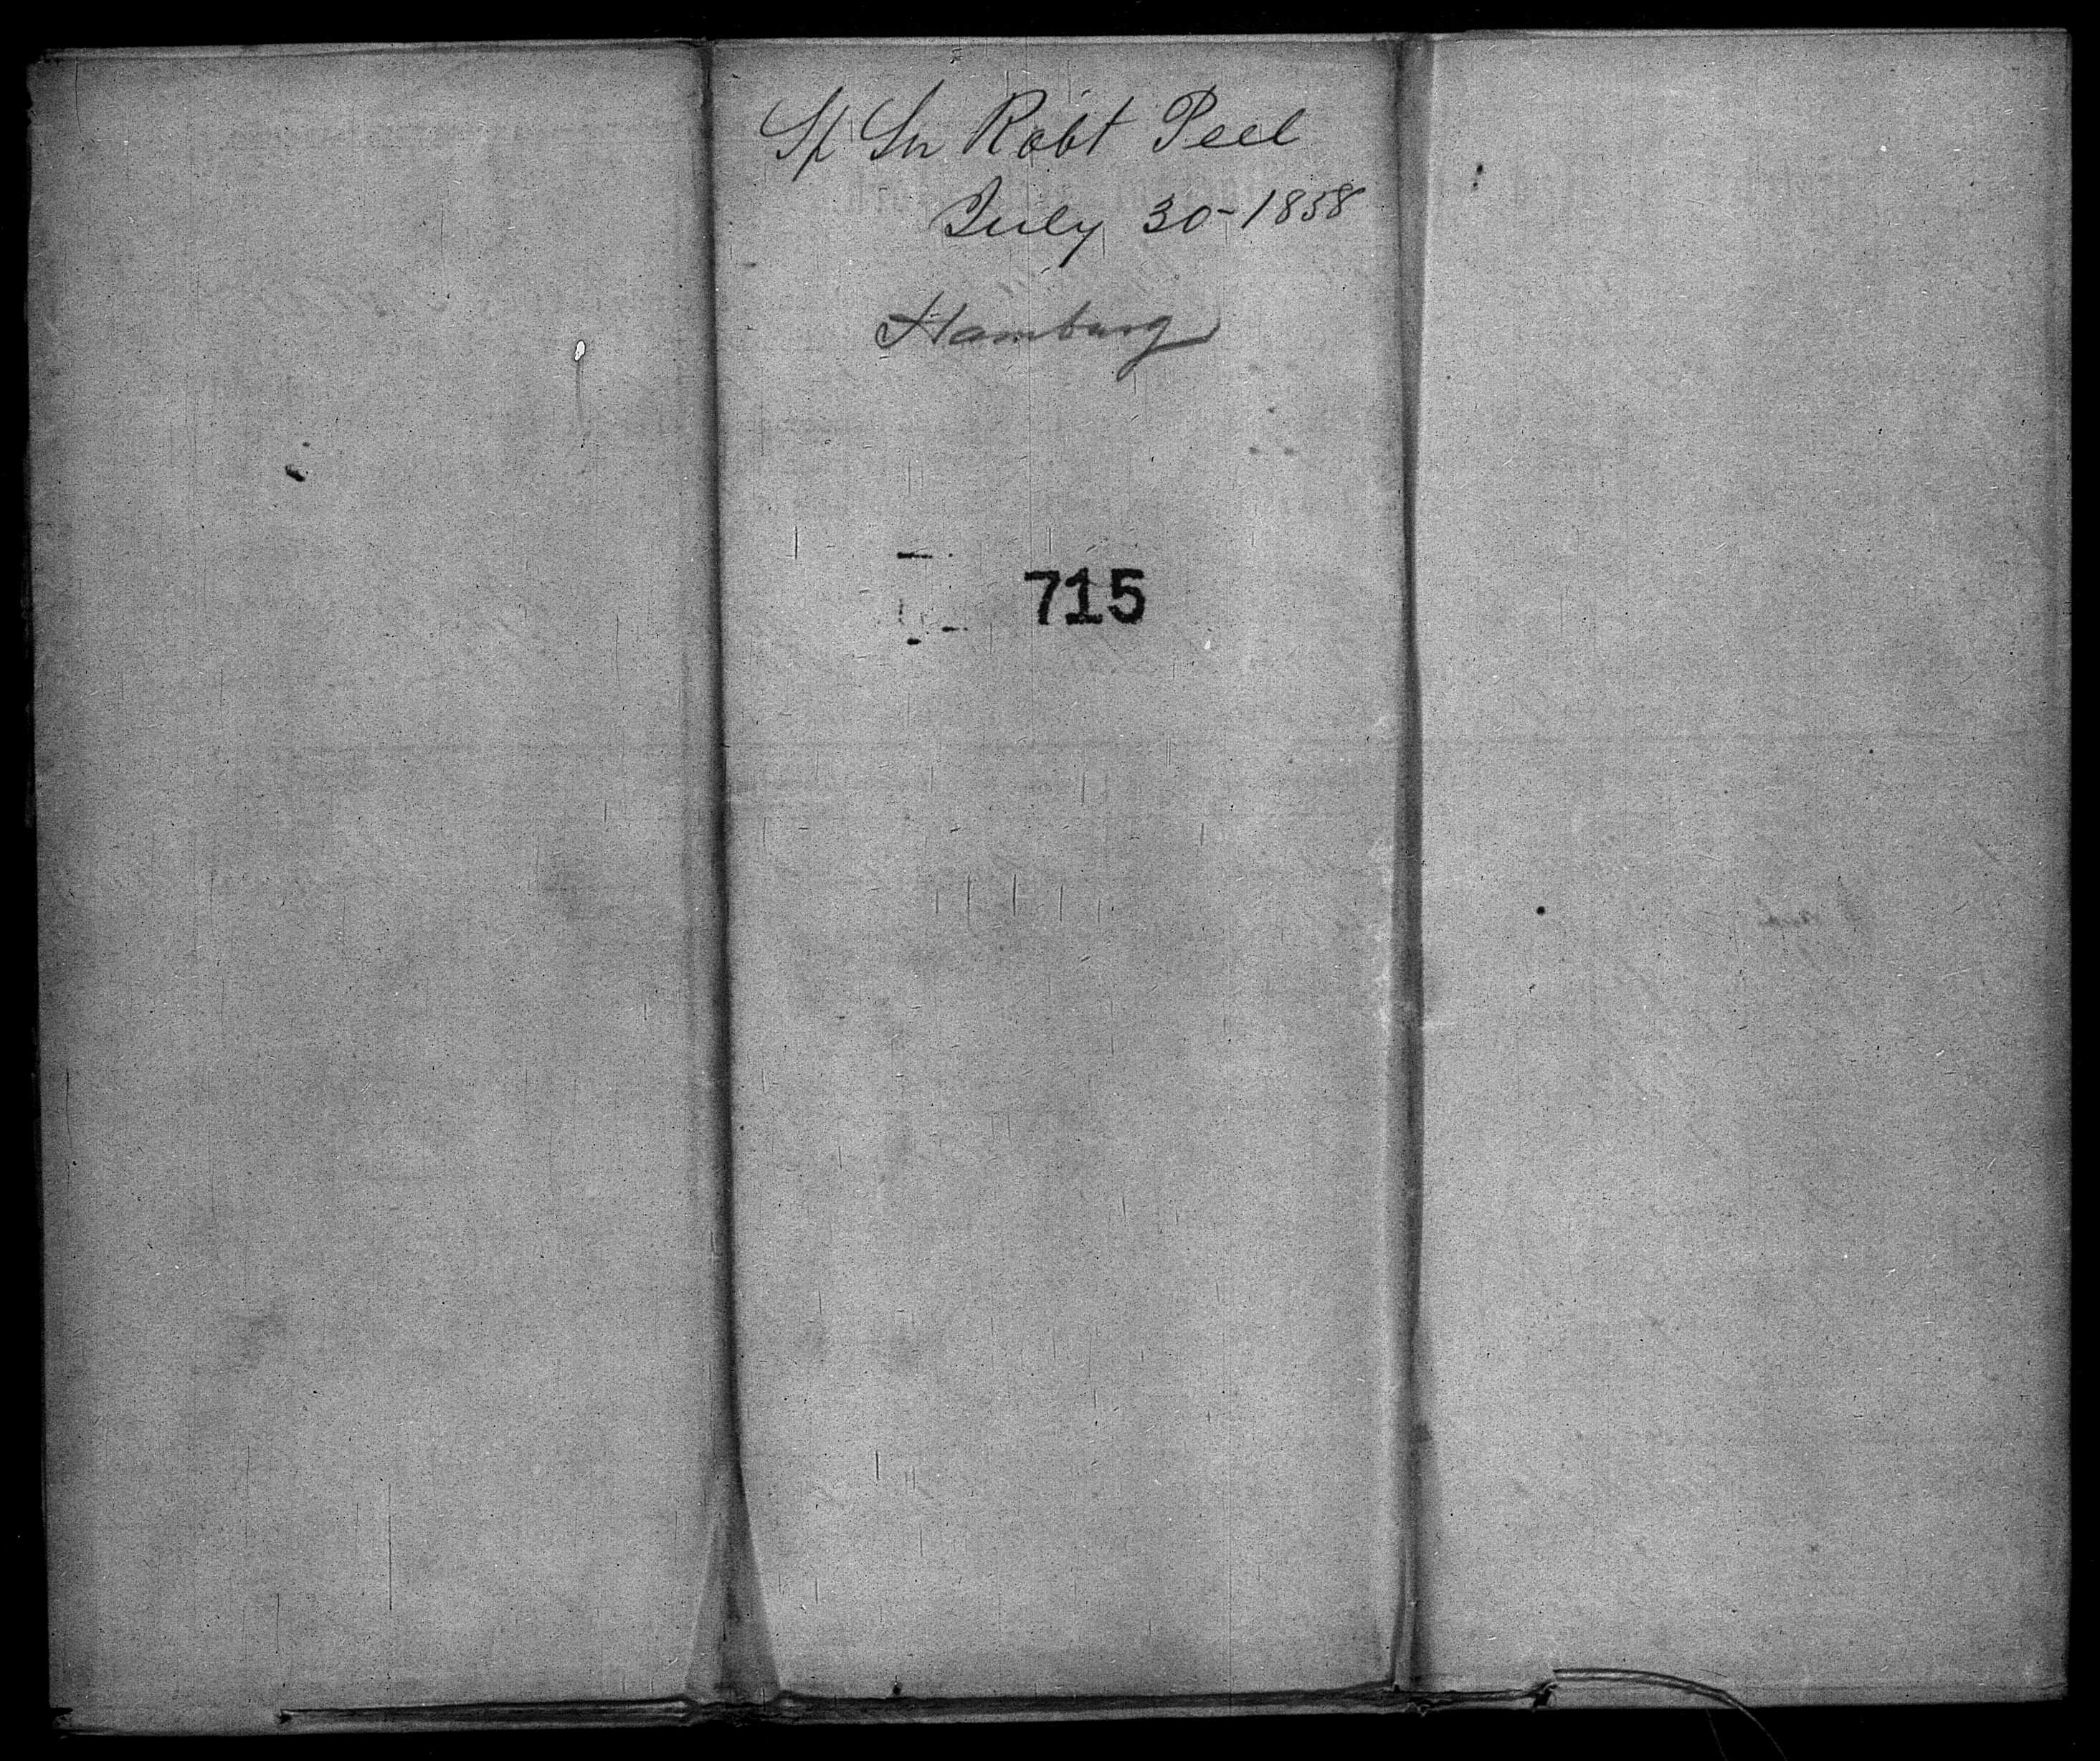 Sp Sir Robt Peel
July 30-1858
Hamburg
715